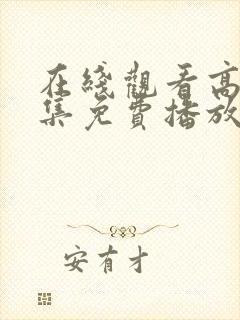 在綫觀看高
集免費播放
安有才